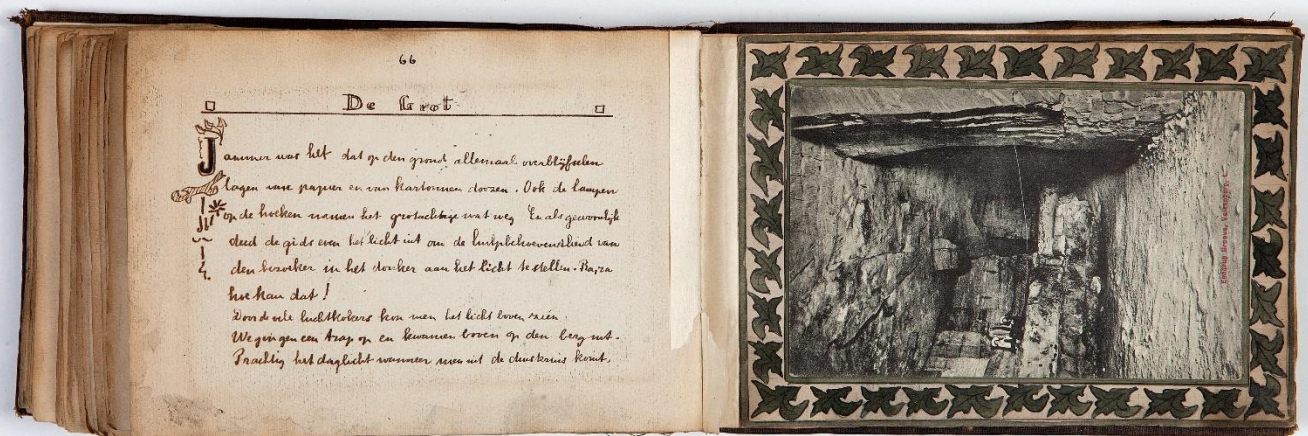 66
De Grot
Jammer was het dat op den grond allemaal overblijfselen
lagen van papier en van kartonnen doozen. Ook de lampen
op de hoeken namen het grotachtige wat weg En als gewoonlijk
deed de gids even het licht uit om de hulpbehoevendheid van
den bezoeker in het donker aan het licht te stellen.
hoe kan dat!
Door de vele luchtkokers kon men het licht boven zien.
We gingen een trap op en kwamen boven op den berg uit.
Prachtig het daglicht wanneer men uit de duisternis komt.